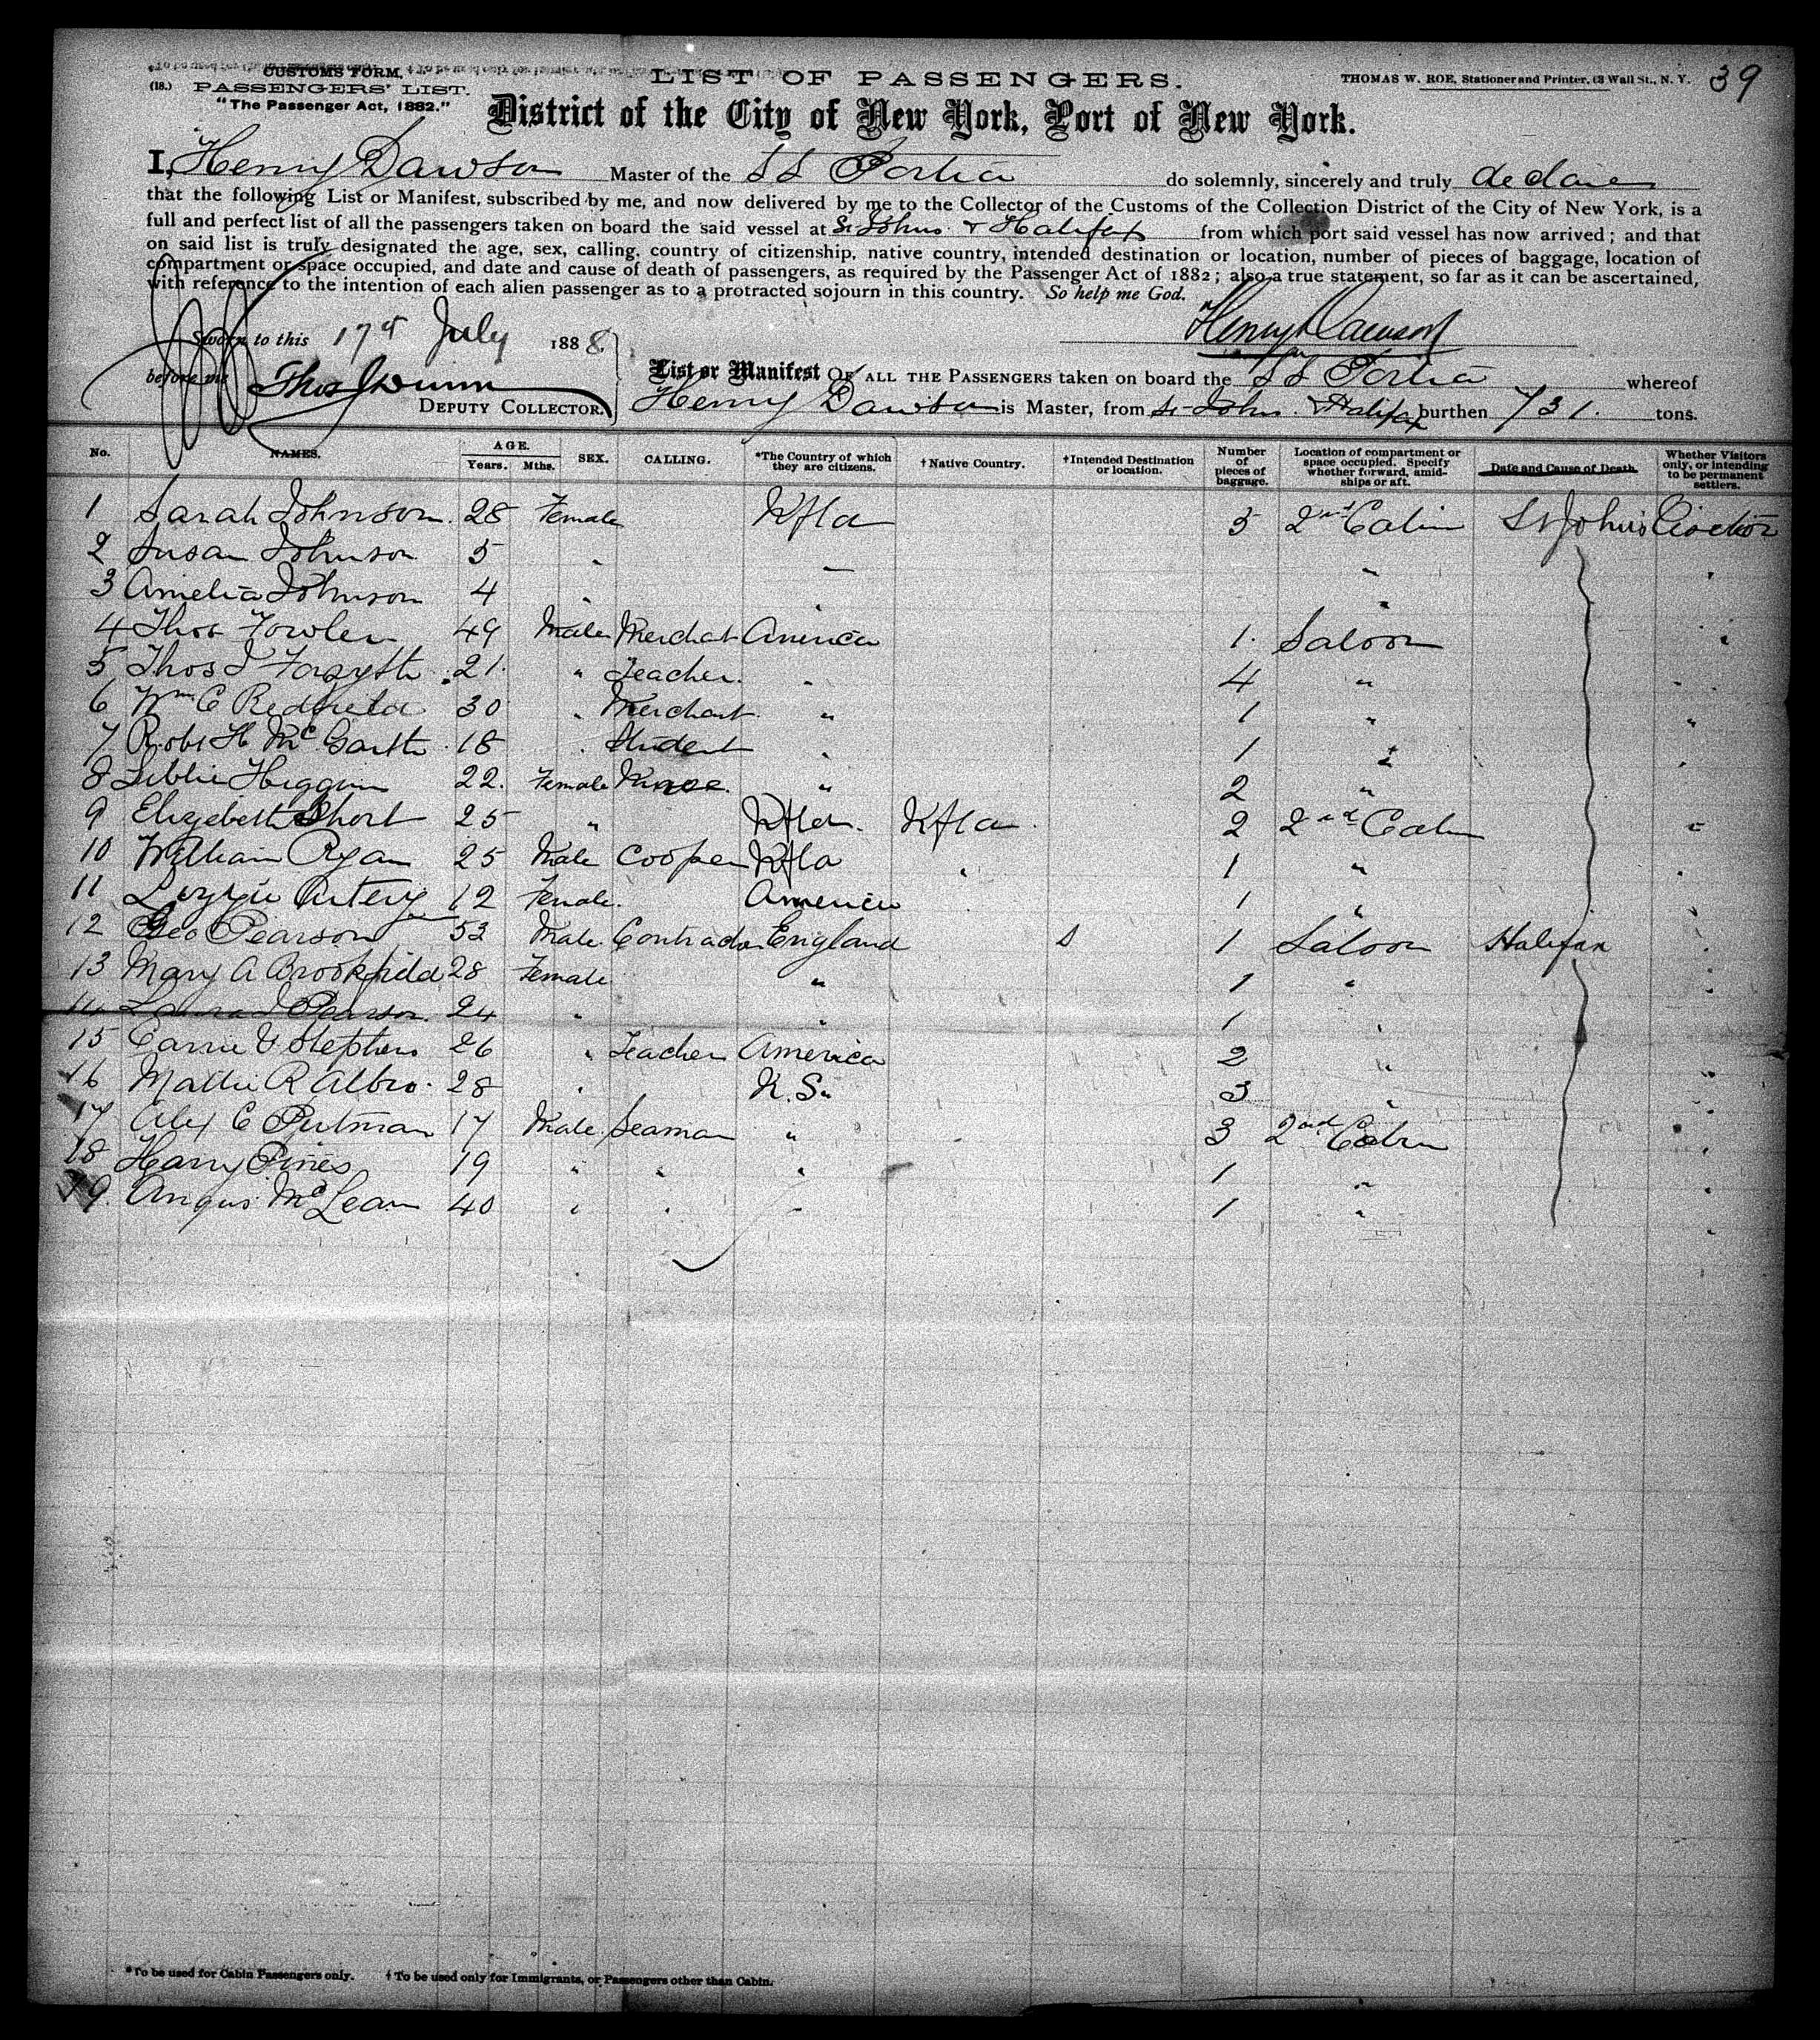 CUSTOMS FORM.
(18.) PASSENGERS' LIST.
"The Passenger Act, 1882."
LIST OF PASSENGERS.
THOMAS W. ROE, Stationer and Printer, 63 Wall St., N. Y. 39
District of the City of New York, Port of New York.
I, Henry Dawson Master of the SS Portia do solemnly, sincerely and truly declare
that the following List or Manifest, subscribed by me, and now delivered by me to the Collector of the Customs of the Collection District of the City of New York, is a
full and perfect list of all the passengers taken on board the said vessel at St Johns & Halifax from which port said vessel has now arrived; and that
on said list is truly designated the age, sex, calling, country of citizenship, native country, intended destination or location, number of pieces of baggage, location of
compartment or space occupied, and date and cause of death of passengers, as required by the Passenger Act of 1882; also a true statement, so far as it can be ascertained,
with reference to the intention of each alien passenger as to a protracted sojourn in this country. So help me God.
Henry Dawson
Sworn to this 17 July 1888
before me Thos Dunn
DEPUTY COLLECTOR.
List or Manifest OF ALL THE PASSENGERS taken on board the SS Portia whereof
Henry Dawson is Master, from St John & Halifax burthen 731. tons.
No. NAMES. AGE. Years. Mths. SEX. CALLING. *The Country of which they are citizens. †Native Country. †Intended Destination or location. Number of pieces of baggage. Location of compartment or space occupied. Specify whether forward, amidships or aft. Date and Cause of Death. Whether Visitors only, or intending to be permanent settlers.
1 Sarah Johnson. 28 Female Nfld 3 2nd Cabin St Johns
2 Susan Johnson 5 " " "
3 Amelia Johnson 4 " " "
4 Thos Fowler 49 Male Merchat America 1 Saloon "
5 Thos J Forsyth 21 " Teacher. " 4 " "
6 Wm C Redfield 30 " Merchant " 1 " "
7 Robt H McGarth 18 " Student " 1 " "
8 Libbie Higgins 22. Female Nurse. " 2 "
9 Elizebeth Short 25 " Nfld. Nfld 2 2nd Cabin "
10 William Ryan 25 Male Cooper Nfld " 1 " "
11 Lizzie 12 Female. America 1 " "
12 Geo Pearson 53 Male Contractor England 1 Saloon Halifax "
13 Mary A Brookfield 28 Female " 1 " "
14 Pearson 24 " " 1 "
15 Carrie V Stephens 26 " Teacher America 2 "
16 Mattie R Albro. 28 " N.S. 3 " "
17 Alex C Putman 17 Male Seaman " 3 2nd Cabin "
18 Harry Pines 19 " " " 1 " "
19. Angus McLean 40 " " " 1 " "
*To be used for Cabin Passengers only. † To be used only for Immigrants, or Passengers other than Cabin.